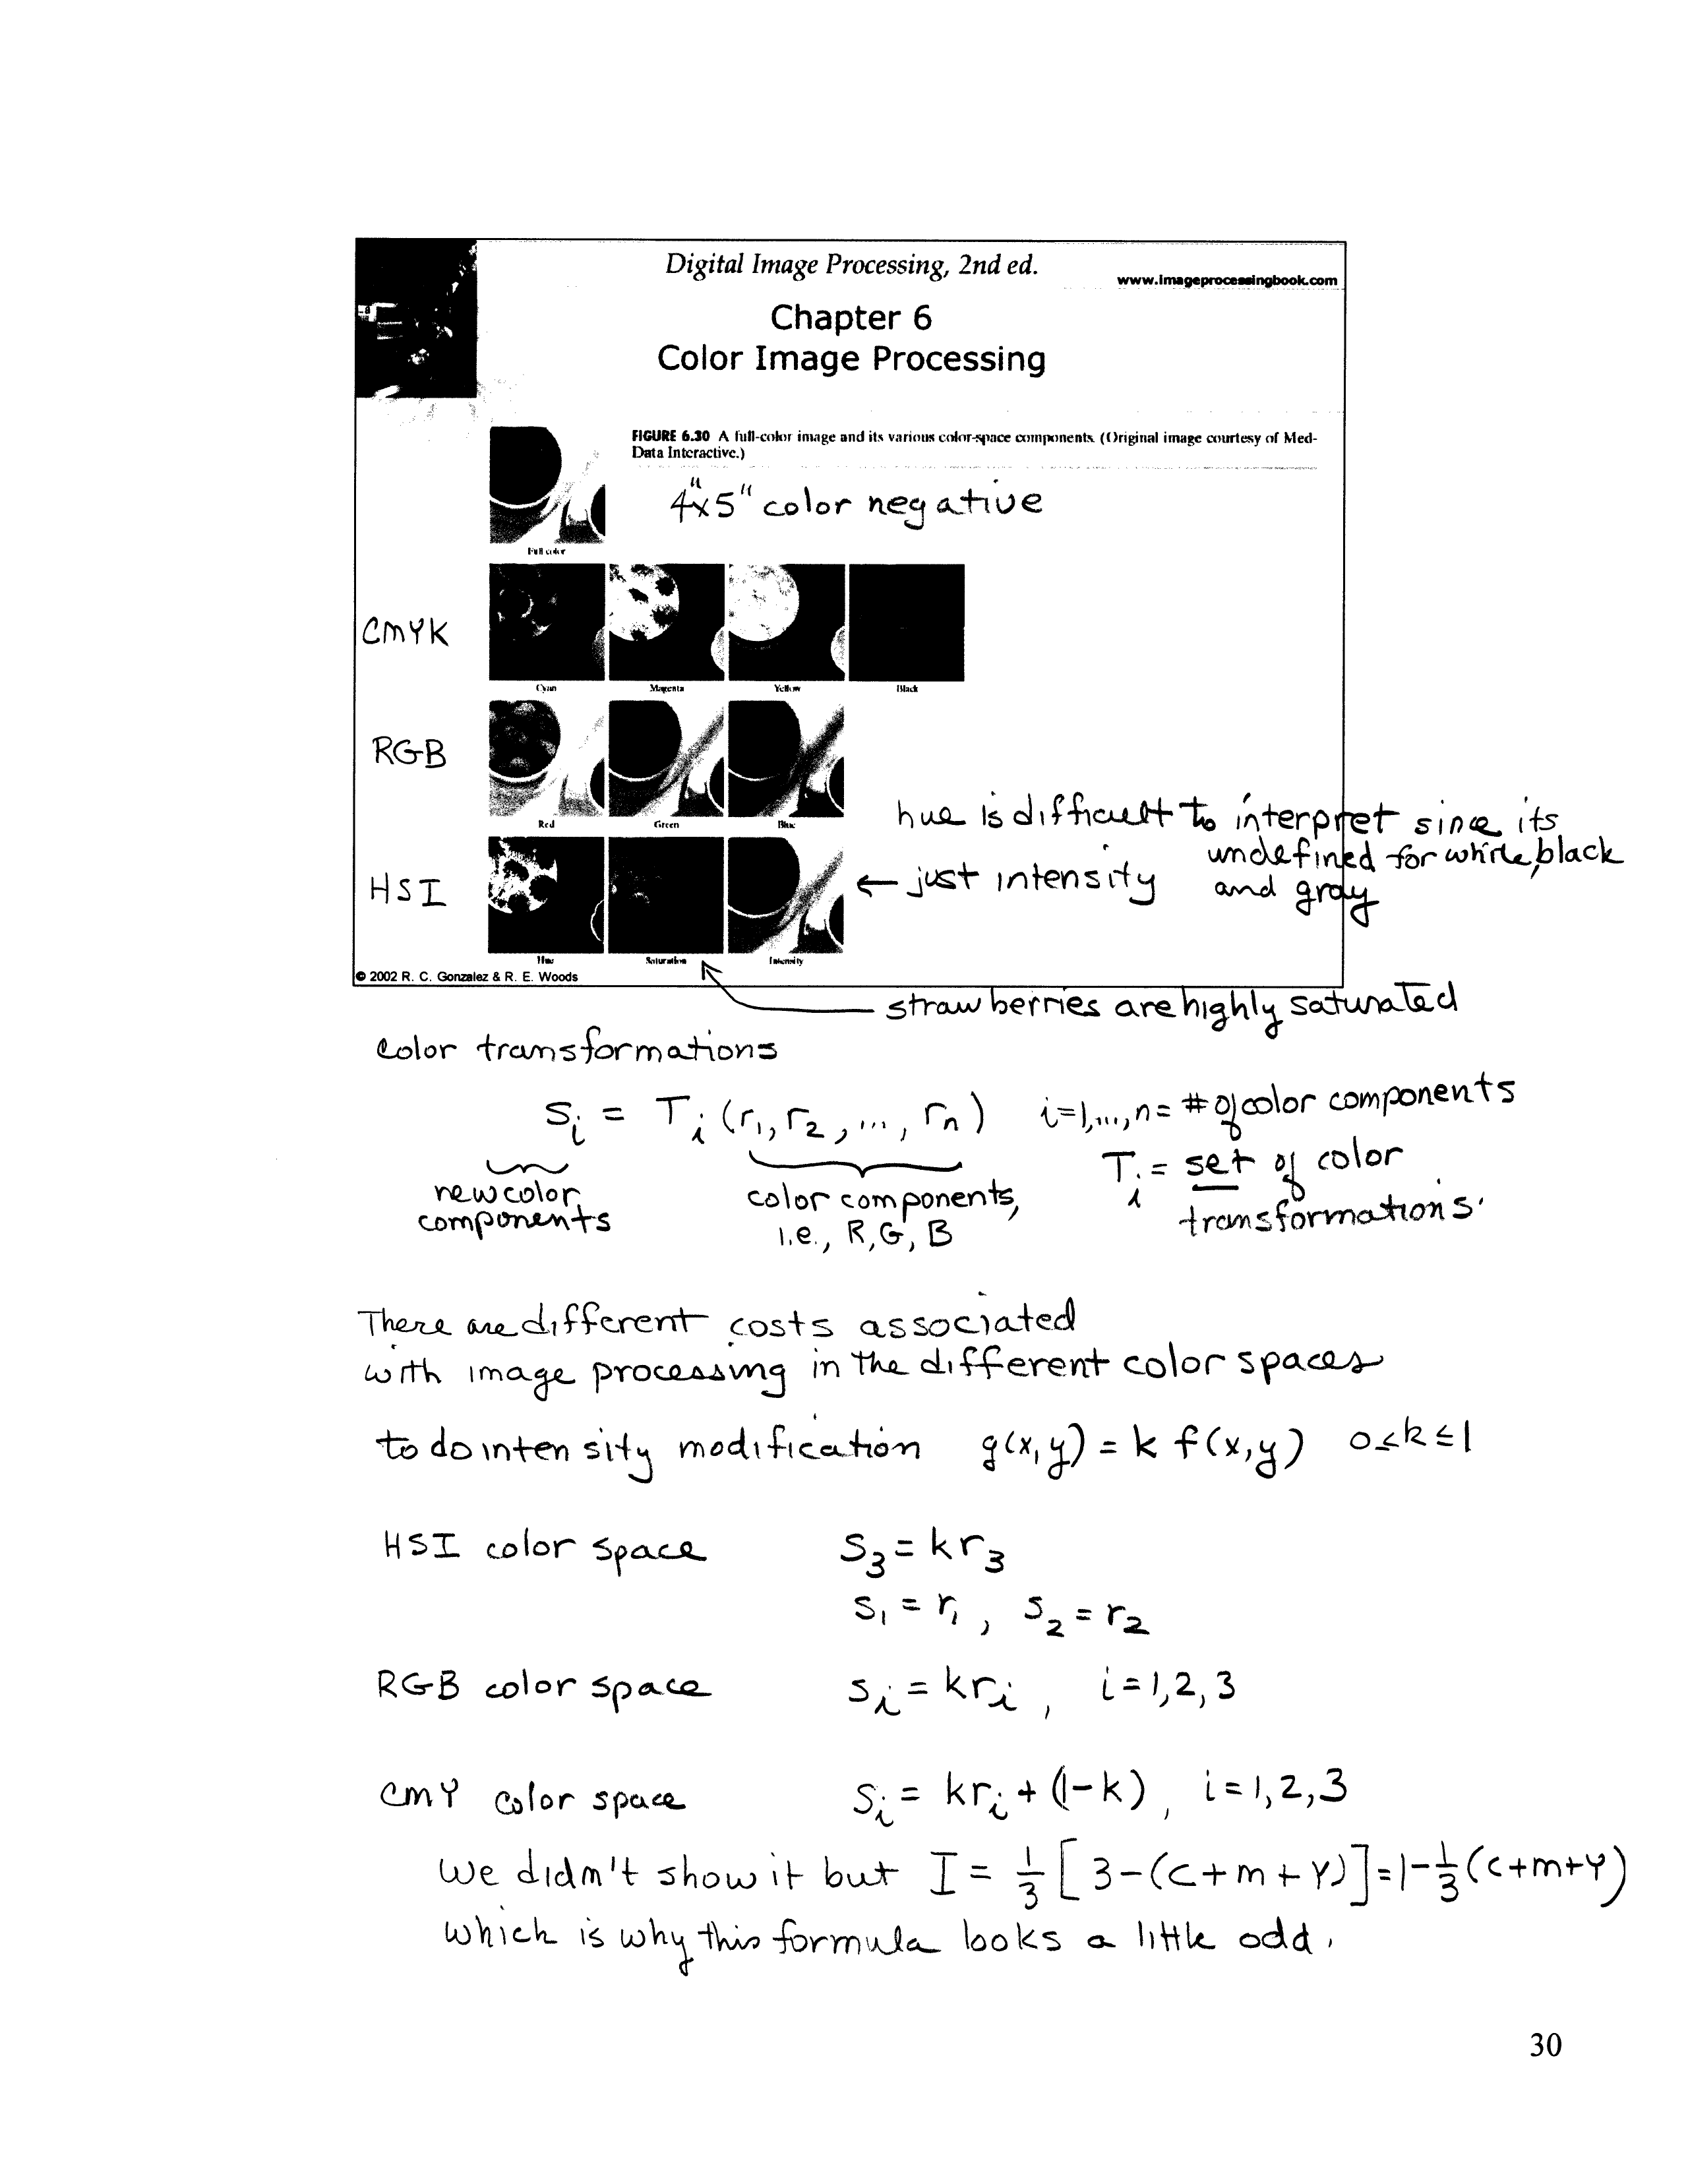 Digital Image Processing, 2nd ed.
www.imageprocessingbook.com
Chapter 6
Color Image Processing
FIGURE 6.30 A full-color image and its various color-space components. (Original image courtesy of Med-
Data Interactive.)
4"x5" color negative
Full color
CMYK
Cyan Magenta Yellow Black
RGB
Red Green Blue
hue is difficult to interpret since its
undefined for white, black
and gray
HSI
← just intensity
Hue Saturation Intensity
© 2002 R. C. Gonzalez & R. E. Woods
strawberries are highly saturated
color transformations
s_i = T_i (r_1, r_2, ..., r_n) i=1,...,n = # of color components
T_i = set of color
transformations.
new color
components
color components,
i.e., R, G, B
There are different costs associated
with image processing in the different color spaces
to do intensity modification g(x,y) = k f(x,y) 0≤k≤1
HSI color space s_3 = k r_3
s_1 = r_1, s_2 = r_2
RGB color space s_i = k r_i, i=1,2,3
CMY color space s_i = k r_i + (1-k), i=1,2,3
We didn't show it but I = 1/3 [3-(C+M+Y)] = 1-1/3(C+M+Y)
which is why this formula looks a little odd.
30